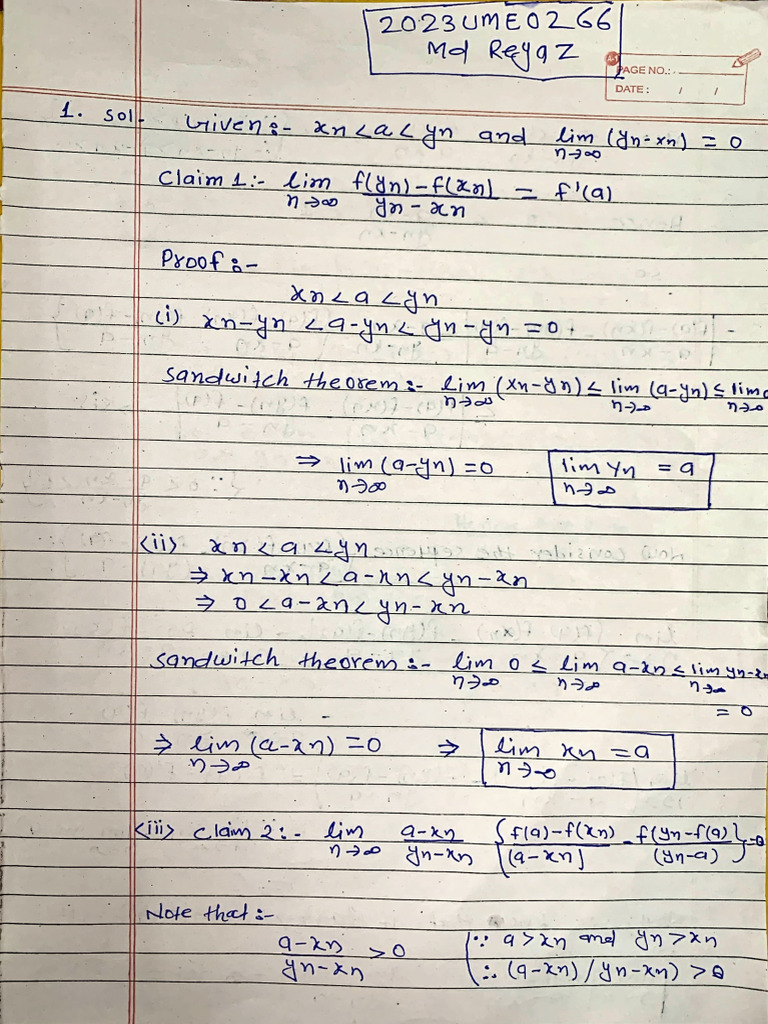 2023UME0266
Md Reyaz
PAGE NO.:
DATE: / /
1. Sol- Given:- xn < a < yn and lim n→∞ (yn-xn) = 0
Claim 1:- lim n→∞ f(yn)-f(xn) / yn-xn = f'(a)
Proof:-
xn < a < yn
(i) xn-yn < a-yn < yn-yn = 0
Sandwitch theorem:- lim n→∞ (xn-yn) ≤ lim n→∞ (a-yn) ≤ lim n→∞
⇒ lim n→∞ (a-yn) = 0 lim n→∞ yn = a
<ii> xn < a < yn
⇒ xn-xn < a-xn < yn-xn
⇒ 0 < a-xn < yn-xn
Sandwitch theorem:- lim n→∞ 0 ≤ lim n→∞ a-xn ≤ lim n→∞ yn-xn
= 0
⇒ lim n→∞ (a-xn) = 0 ⇒ lim n→∞ xn = a
<iii> Claim 2:- lim n→∞ a-xn / yn-xn { f(a)-f(xn) / (a-xn) - f(yn-f(a) / (yn-a) } = 0
Note that:-
a-xn / yn-xn > 0 (∵ a > xn and yn > xn
∴ (a-xn) / yn-xn) > 0